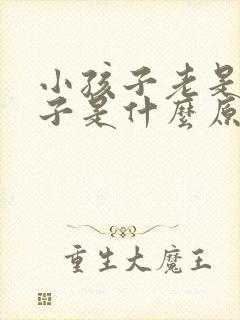 小孩子老是
子是什麼原
重生大魔王